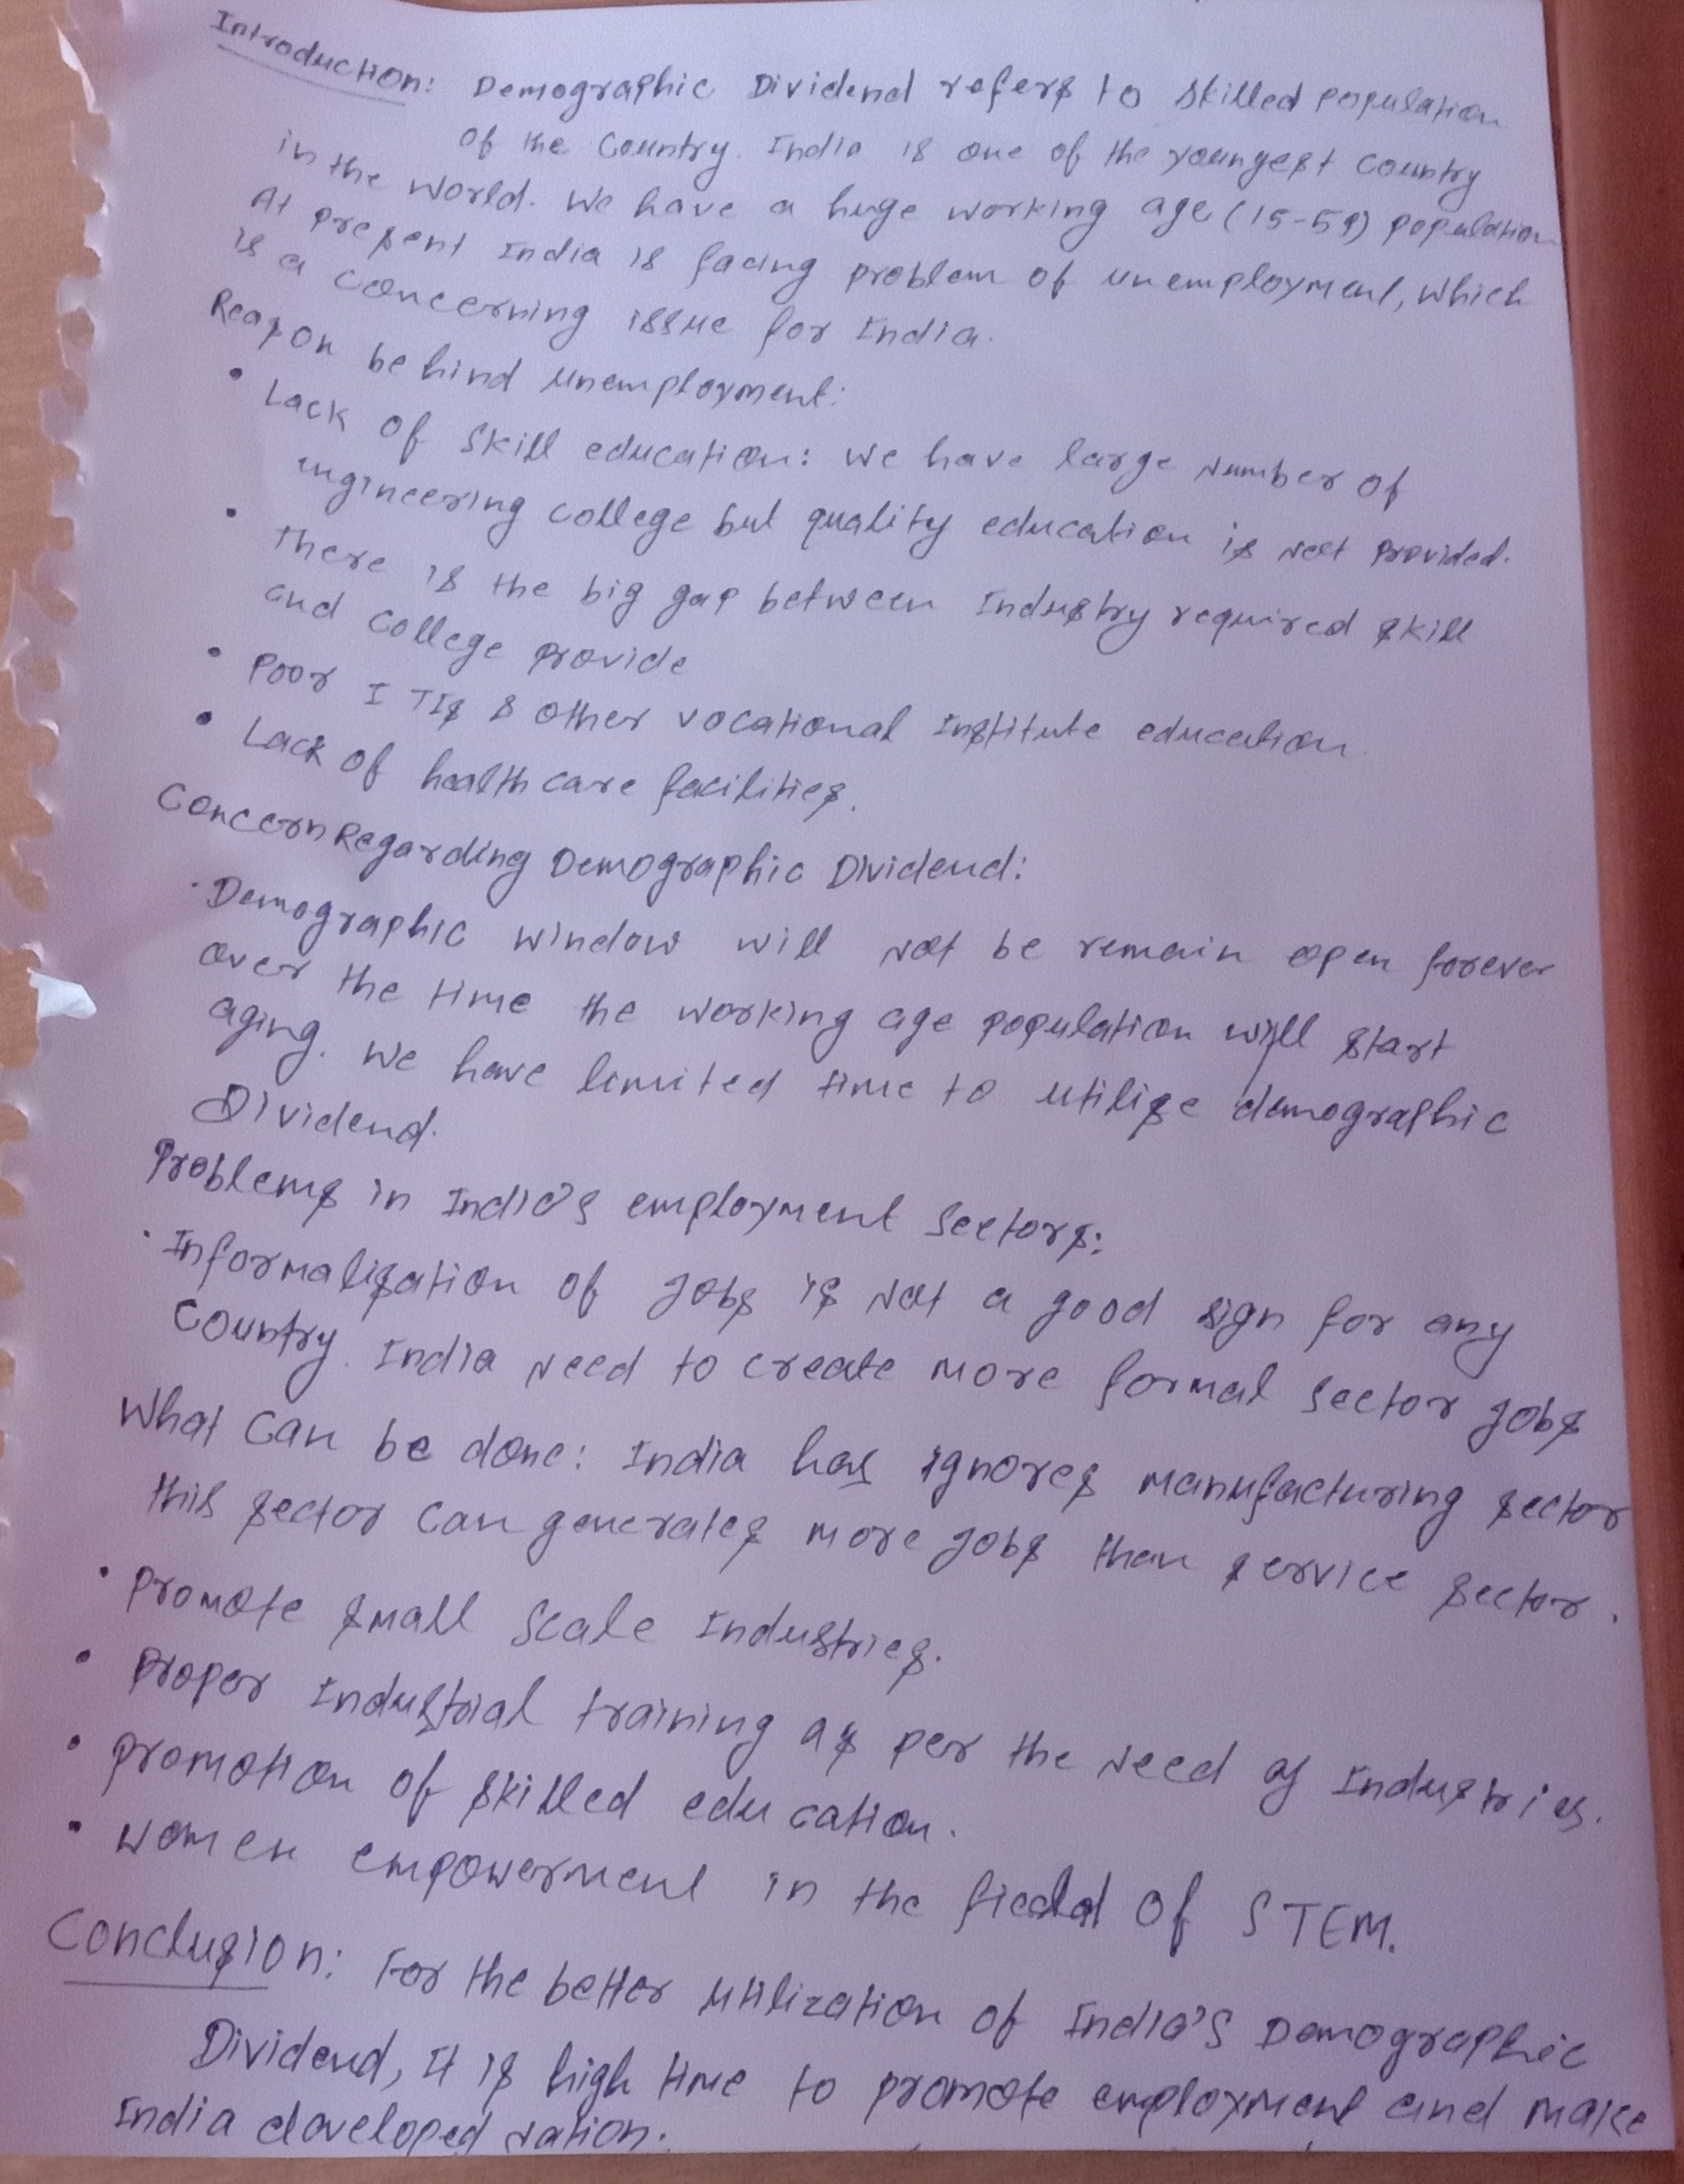 Introduction: Demographic Dividend refers to skilled population
of the Country. India is one of the youngest Country
in the world. We have a huge working age (15-59) population
At present India is facing problem of unemployment, which
is a concerning issue for India.
Reason behind unemployment:
• Lack of skill education: we have large number of
engineering college but quality education is not provided.
• There is the big gap between Industry required skill
and college provide
• Poor ITIs & other vocational Institute education.
• Lack of health care facilities.
Concern Regarding Demographic Dividend:
· Demographic window will not be remain open forever
over the time the working age population will start
aging. We have limited time to utilise demographic
Dividend.
Problems in India's employment sectors:
· Informalisation of jobs is not a good sign for any
Country. India need to create more formal sector jobs
What can be done: India has ignores manufacturing sector
this sector can generates more jobs than service sector.
• Promote small scale Industries.
• Proper Industrial training as per the need of Industries.
• promotion of skilled education.
• women empowerment in the field of STEM.
Conclusion: For the better utilization of India's Demographic
Dividend, It is high time to promote employment and make
India developed nation.